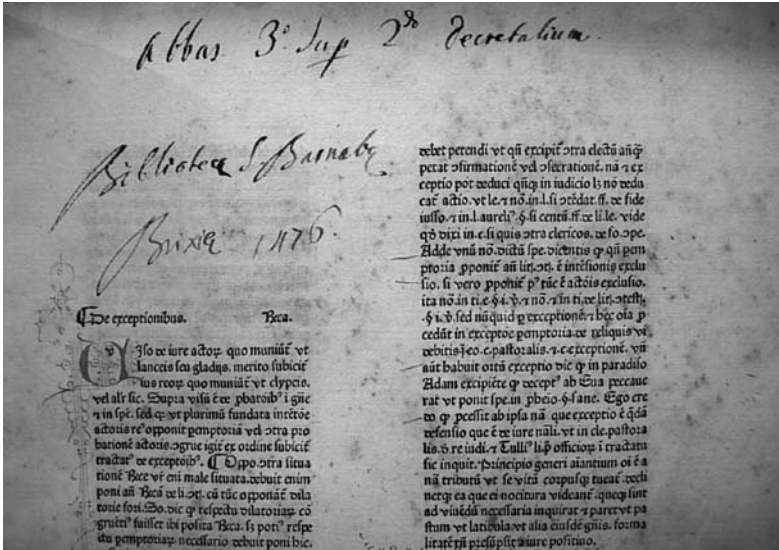 Abbas 3º Sup 2do decretalium.
Biblioteca S. Barnabę
Brixię 1476.
De exceptionibus. Rꝫca.
Iſo de iure actoꝝ quo muniũt᷑ vt
lanceis ſeu gladijs. merito ſubicit᷑
ius reoꝝ quo muniũt᷑ vt clypeis.
vel alr̃ ſic. Supra viſũ ē de ꝓbatoib⁹ ĩ gñe
⁊ in ſpē. ſed qꝫ vt plurimũ fundata intẽtõe
actoris re⁹ opponit ꝑemptoriã vel ↄtra pro
bationē actoris. ↄgrue igit᷑ ex ordine ſubicit᷑
tractat⁹ de exceptõib⁹. Oppo. ↄtra ſitua
tionē
poni añ
torie fori. So. dic ꝙ reſpectu dilatoriaꝝ ↄ
gruẽti⁹ fuiſſet ibi poſita Rꝫca. ſꝫ poti⁹ reſpe
ctu ꝑemptoriaꝝ neceſſario debuit poni hic.
debet petendi vt qñ excipit᷑ ↄtra electũ añꝙ̃
petat ↄfirmationē vel ↄſecrationē. nã ⁊ ex
ceptio põt deduci qñqꝫ in iudicio lꝫ nõ dedu
cat᷑ actio. vt le. ⁊ nõ. in.l. ſi ↄtẽdat. ff. de fide
iuſſo. ⁊ in.l. aureli⁹. §. ſi centũ. ff. de li. le. vide
qđ dixi in c. ſi quis ↄtra clericos. de fo. ↄpe.
Adde vnũ nõ. dictũ ſpe. dicẽtis ꝙ qñ pem
ptoria ꝓponit᷑ añ lit. ↄteſ. ē intẽſionis excluſio
ſio. ſi vero ꝓponit᷑ p⁹ tũc ē actõis excluſio.
ita nõ. in ti. e. §. i. ꝟ. ⁊ nõ. ⁊ in ti. de lit. ↄteſt.
§. i. ꝟ. ſed nũquid ꝑ exceptionē. ⁊ hec oĩa ꝓ
cedũt in exceptõe ꝑemptoria. de reliquis vt
debitis ĩ eo. c. paſtoralis. ⁊ c. exceptionē. vñ
aũt habuit ortũ exceptio dic ꝙ in paradiſo
Adam excipiẽte ꝙ decept⁹ ab Eua peccaue
rat vt ponit ſpe. in ꝓheio. §. ſane. Ego cre
do ꝙ ꝓceſſit ab ipſa nã. que exceptio ē q̃dã
defenſio que ē de iure nãli. vt in cle. paſtora
lis. de re iudi. ⁊ Tulli⁹ li. p̃ officioꝝ ĩ tractatu
ſic inquit. Principio generi aĩantium oĩ ē a
nã tributũ vt ſe vitã corpuſqꝫ tueat᷑. decli
netqꝫ ea que ei nocitura videant᷑. queqꝫ ſint
ad viuẽdũ neceſſaria inquirat ⁊ paret vt pa
ſtum vt latibula vt alia eiuſdē gñis. forma
litatē tñ preſũpſit a iure poſitiuo.